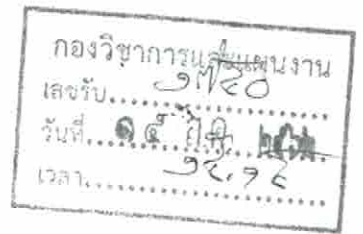 กองวิชาการและแผนงาน
เลขรับ ๑๗๔๐
วันที่ ๑๔
เวลา ๑๔.๑๔